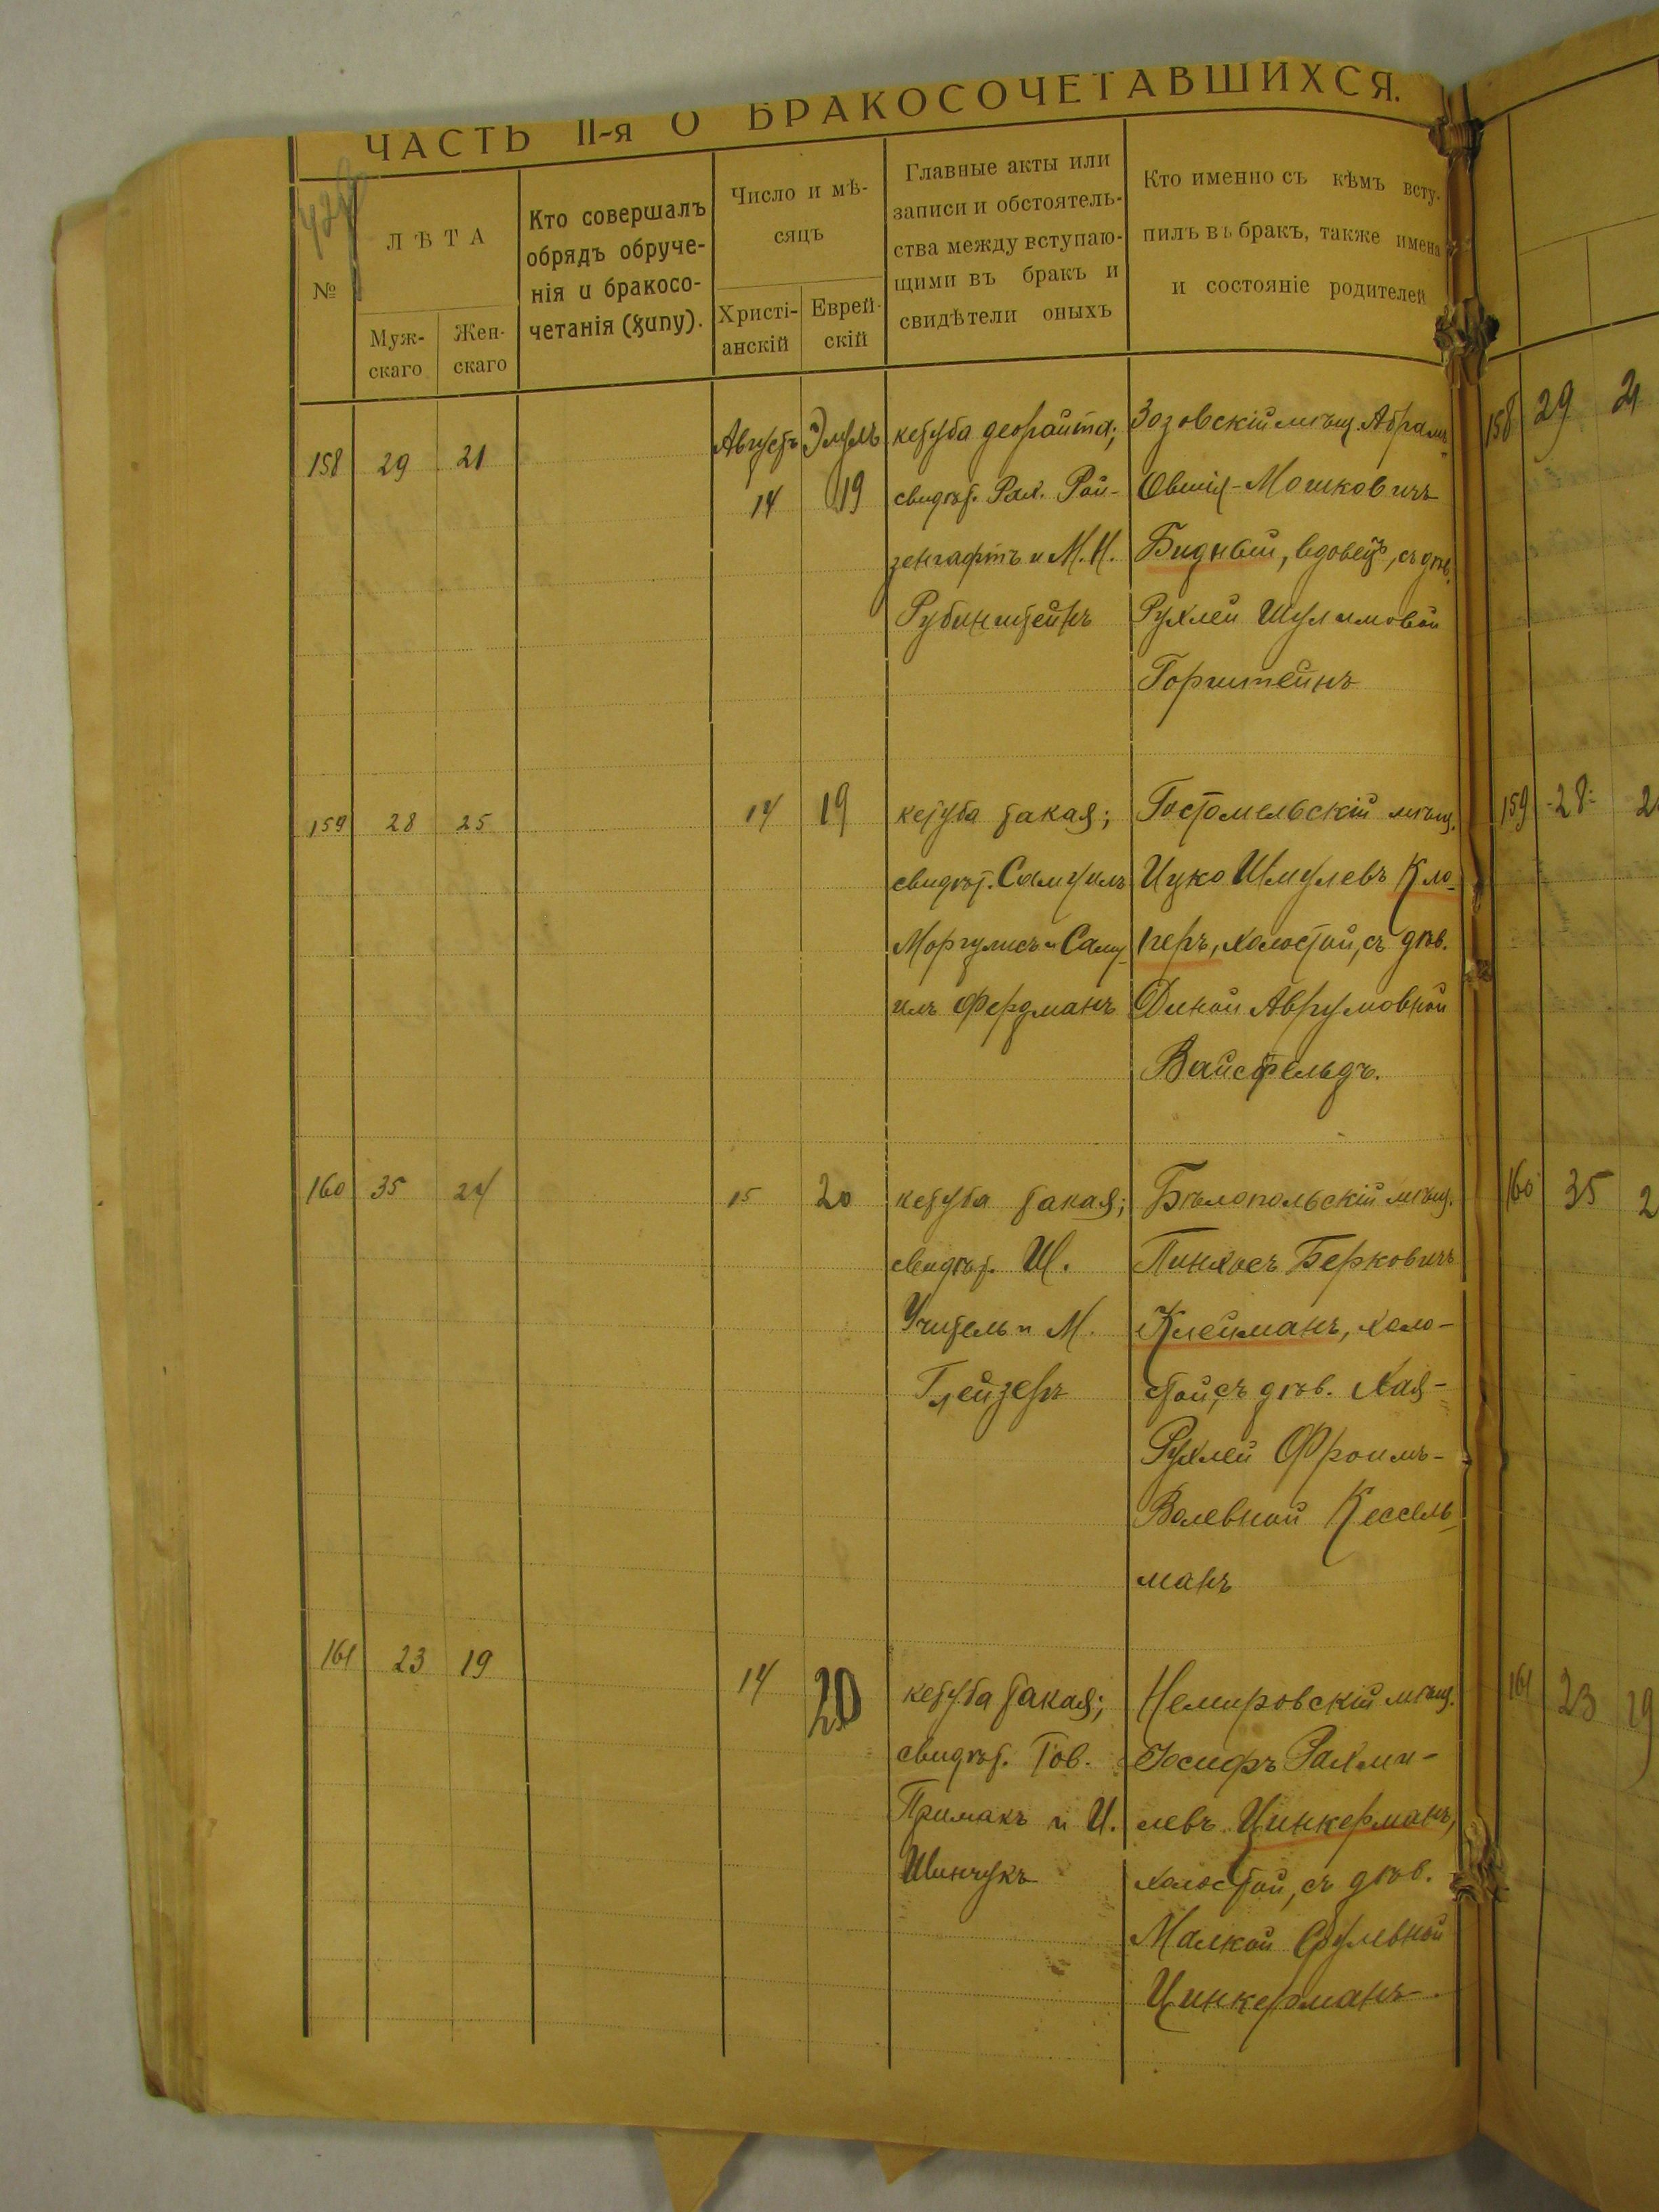 ЧАСТЬ II-я О БРАКОСОЧЕТАВШИХСЯ.
№
ЛѢТА
Муж-
скаго
Жен-
скаго
Кто совершалъ
обрядъ обруче-
нія и бракосо-
четанія (хупу).
Число и мѣ-
сяцъ
Христі-
анскій
Еврей-
скій
Главные акты или
записи и обстоятель-
ства между вступаю-
щими въ бракъ и
свидѣтели оныхъ
Кто именно съ кѣмъ всту-
пилъ въ бракъ, также имена
и состояніе родителей
158 29 21
Августъ 14
Элулъ 19
кетуба деорайта;
свидѣт. Рах. Рой-
зенгафтъ и М. И.
Рубинштейнъ
Зозовскій мѣщ. Абрамъ-
Овшія-Мошковичъ
Бидный, вдовецъ, съ дѣв.
Рухлей Шулимовой
Горштейнъ
159 28 25
14 19
кетуба такая;
свидѣт. Самуилъ
Моргулисъ и Саму-
илъ Фердманъ
Гостомельскій мѣщ.
Ицко Шмулевъ Кло-
перъ, холостой, съ дѣв.
Диной Аврумовной
Вайсфельдъ.
160 35 24
15 20
кетуба такая;
свидѣт. Ш.
Учитель и М.
Глейзеръ
Бѣлопольскій мѣщ.
Пинхосъ Берковичъ
Клейманъ, холо-
стой, съ дѣв. Хая-
Рухлей Фроимъ-
Волевной Кессель-
манъ
161 23 19
14 20
кетуба такая;
свидѣт. Тов.
Примакъ и И.
Шинчукъ
Немировскій мѣщ.
Іосифъ Рахми-
левъ Цинкерманъ,
холостой, съ дѣв.
Малкой Срулевной
Цинкерманъ.
158 29 21
159 28
160 35
161 23 19